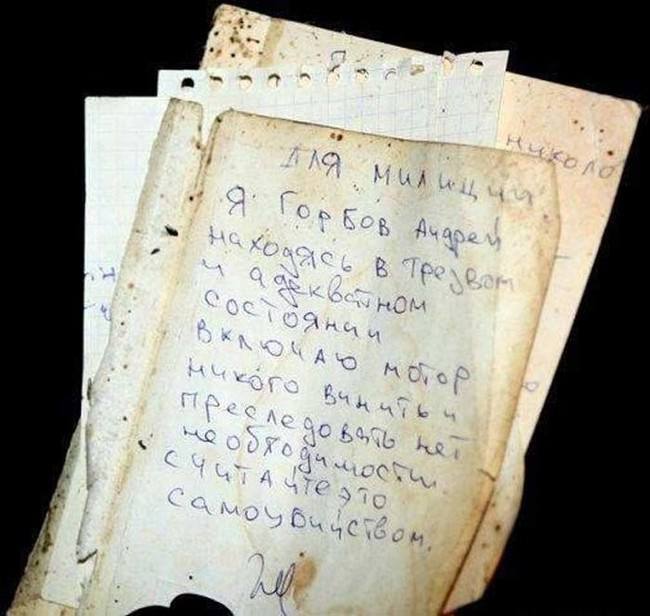 николо
для милиции
Я Горбов Андрей
находясь в трезвом
и адекватном
состоянии
включаю мотор
никого винить и
преследовать нет
необходимости
считайте это
самоубийством.